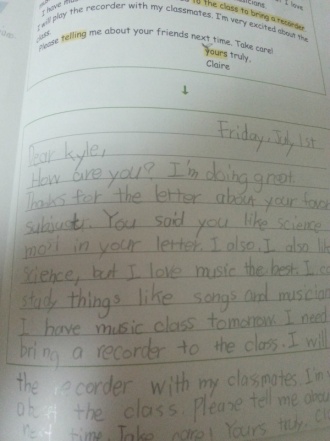 I have mus
to the class to bring a recorder
I love
I will play the recorder with my classmates. I'm very excited about the
class.
Please telling me about your friends next time. Take care!
Yours truly,
Claire
Friday, July 1st
Dear Kyle,
How are you? I'm doing great.
Thanks for the letter about your favo
You said you like science
most in your letter. I also. I also like
science, but I love music the best. I ca
study things like songs and musician
I have music class tomorrow. I need
bring a recorder to the class. I will
the recorder with my clasmates. I'm
the class. Please tell me about
next time. Take care! Yours truly, Cl